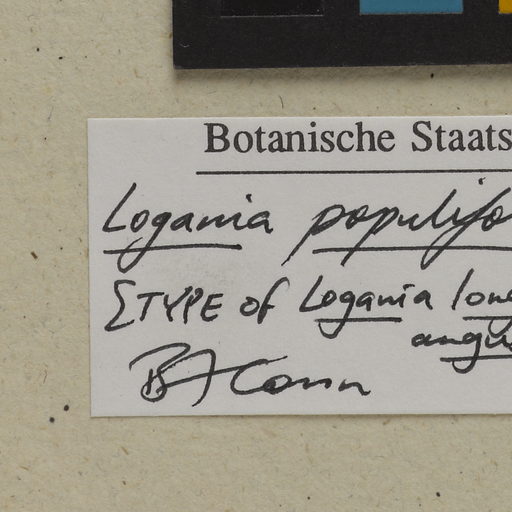 Botanische Staats
Logania populifo
ΣTYPE of Logania long
angu
BJ Conn